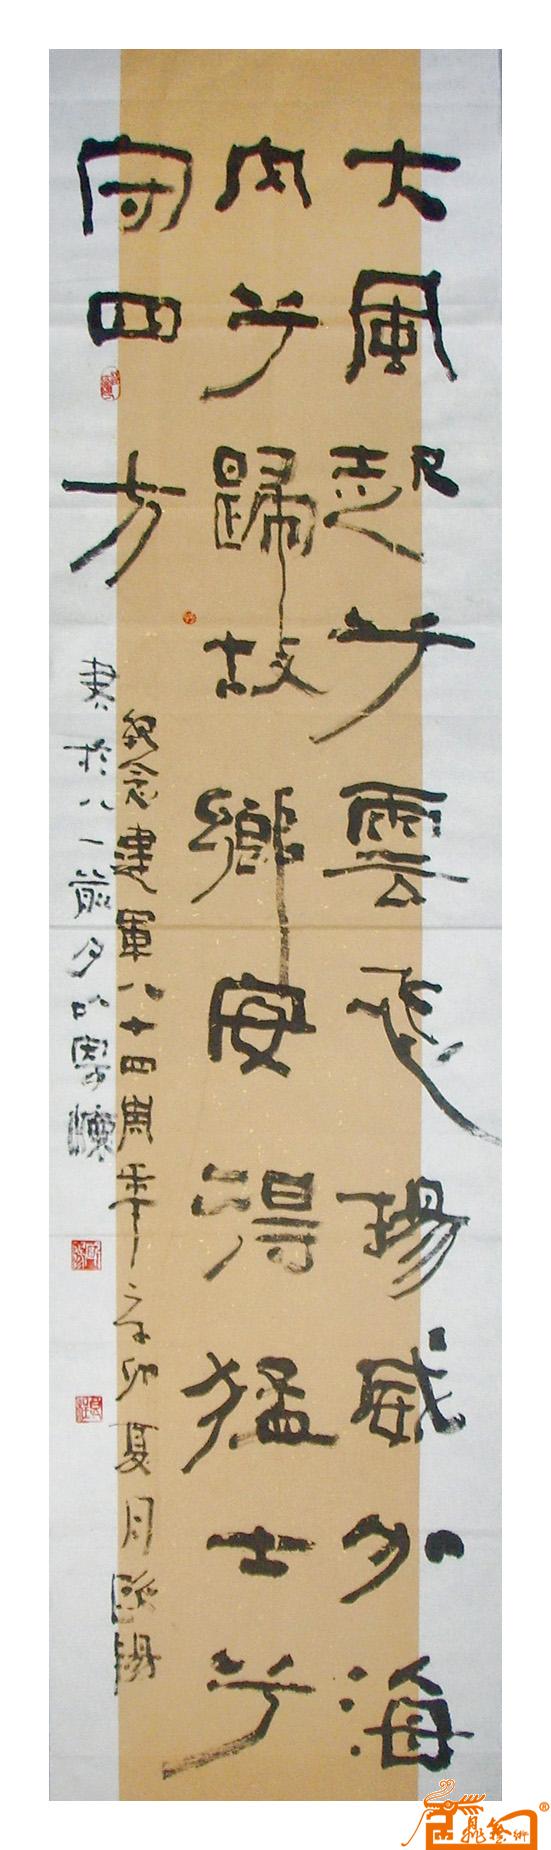 大風起兮雲飛揚威加海
内兮歸故鄉安得猛士兮
守四方
紀念建軍八十四周年辛卯夏月歐陽
書於八一前夕